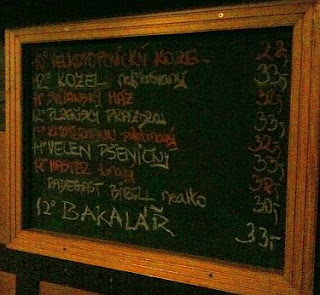 10° VELKOPOPOVICKÝ KOZEL 28,-
12° KOZEL 33,-
11° 32,-
12° PLZEŇSKÝ PRAZDROJ 33,-
32,-
11° VELEN PŠENIČNÝ 33,-
14° MASTER 38,-
RADEGAST BIRELL nealko 30,-
12° BAKALÁŘ 33,-